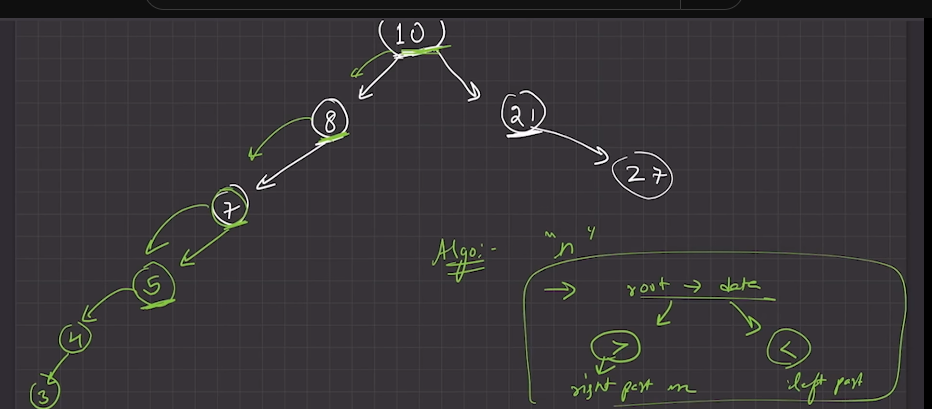 10
8
21
27
7
5
4
3
Algo:- "n"
→ root → data
> <
right part me left part